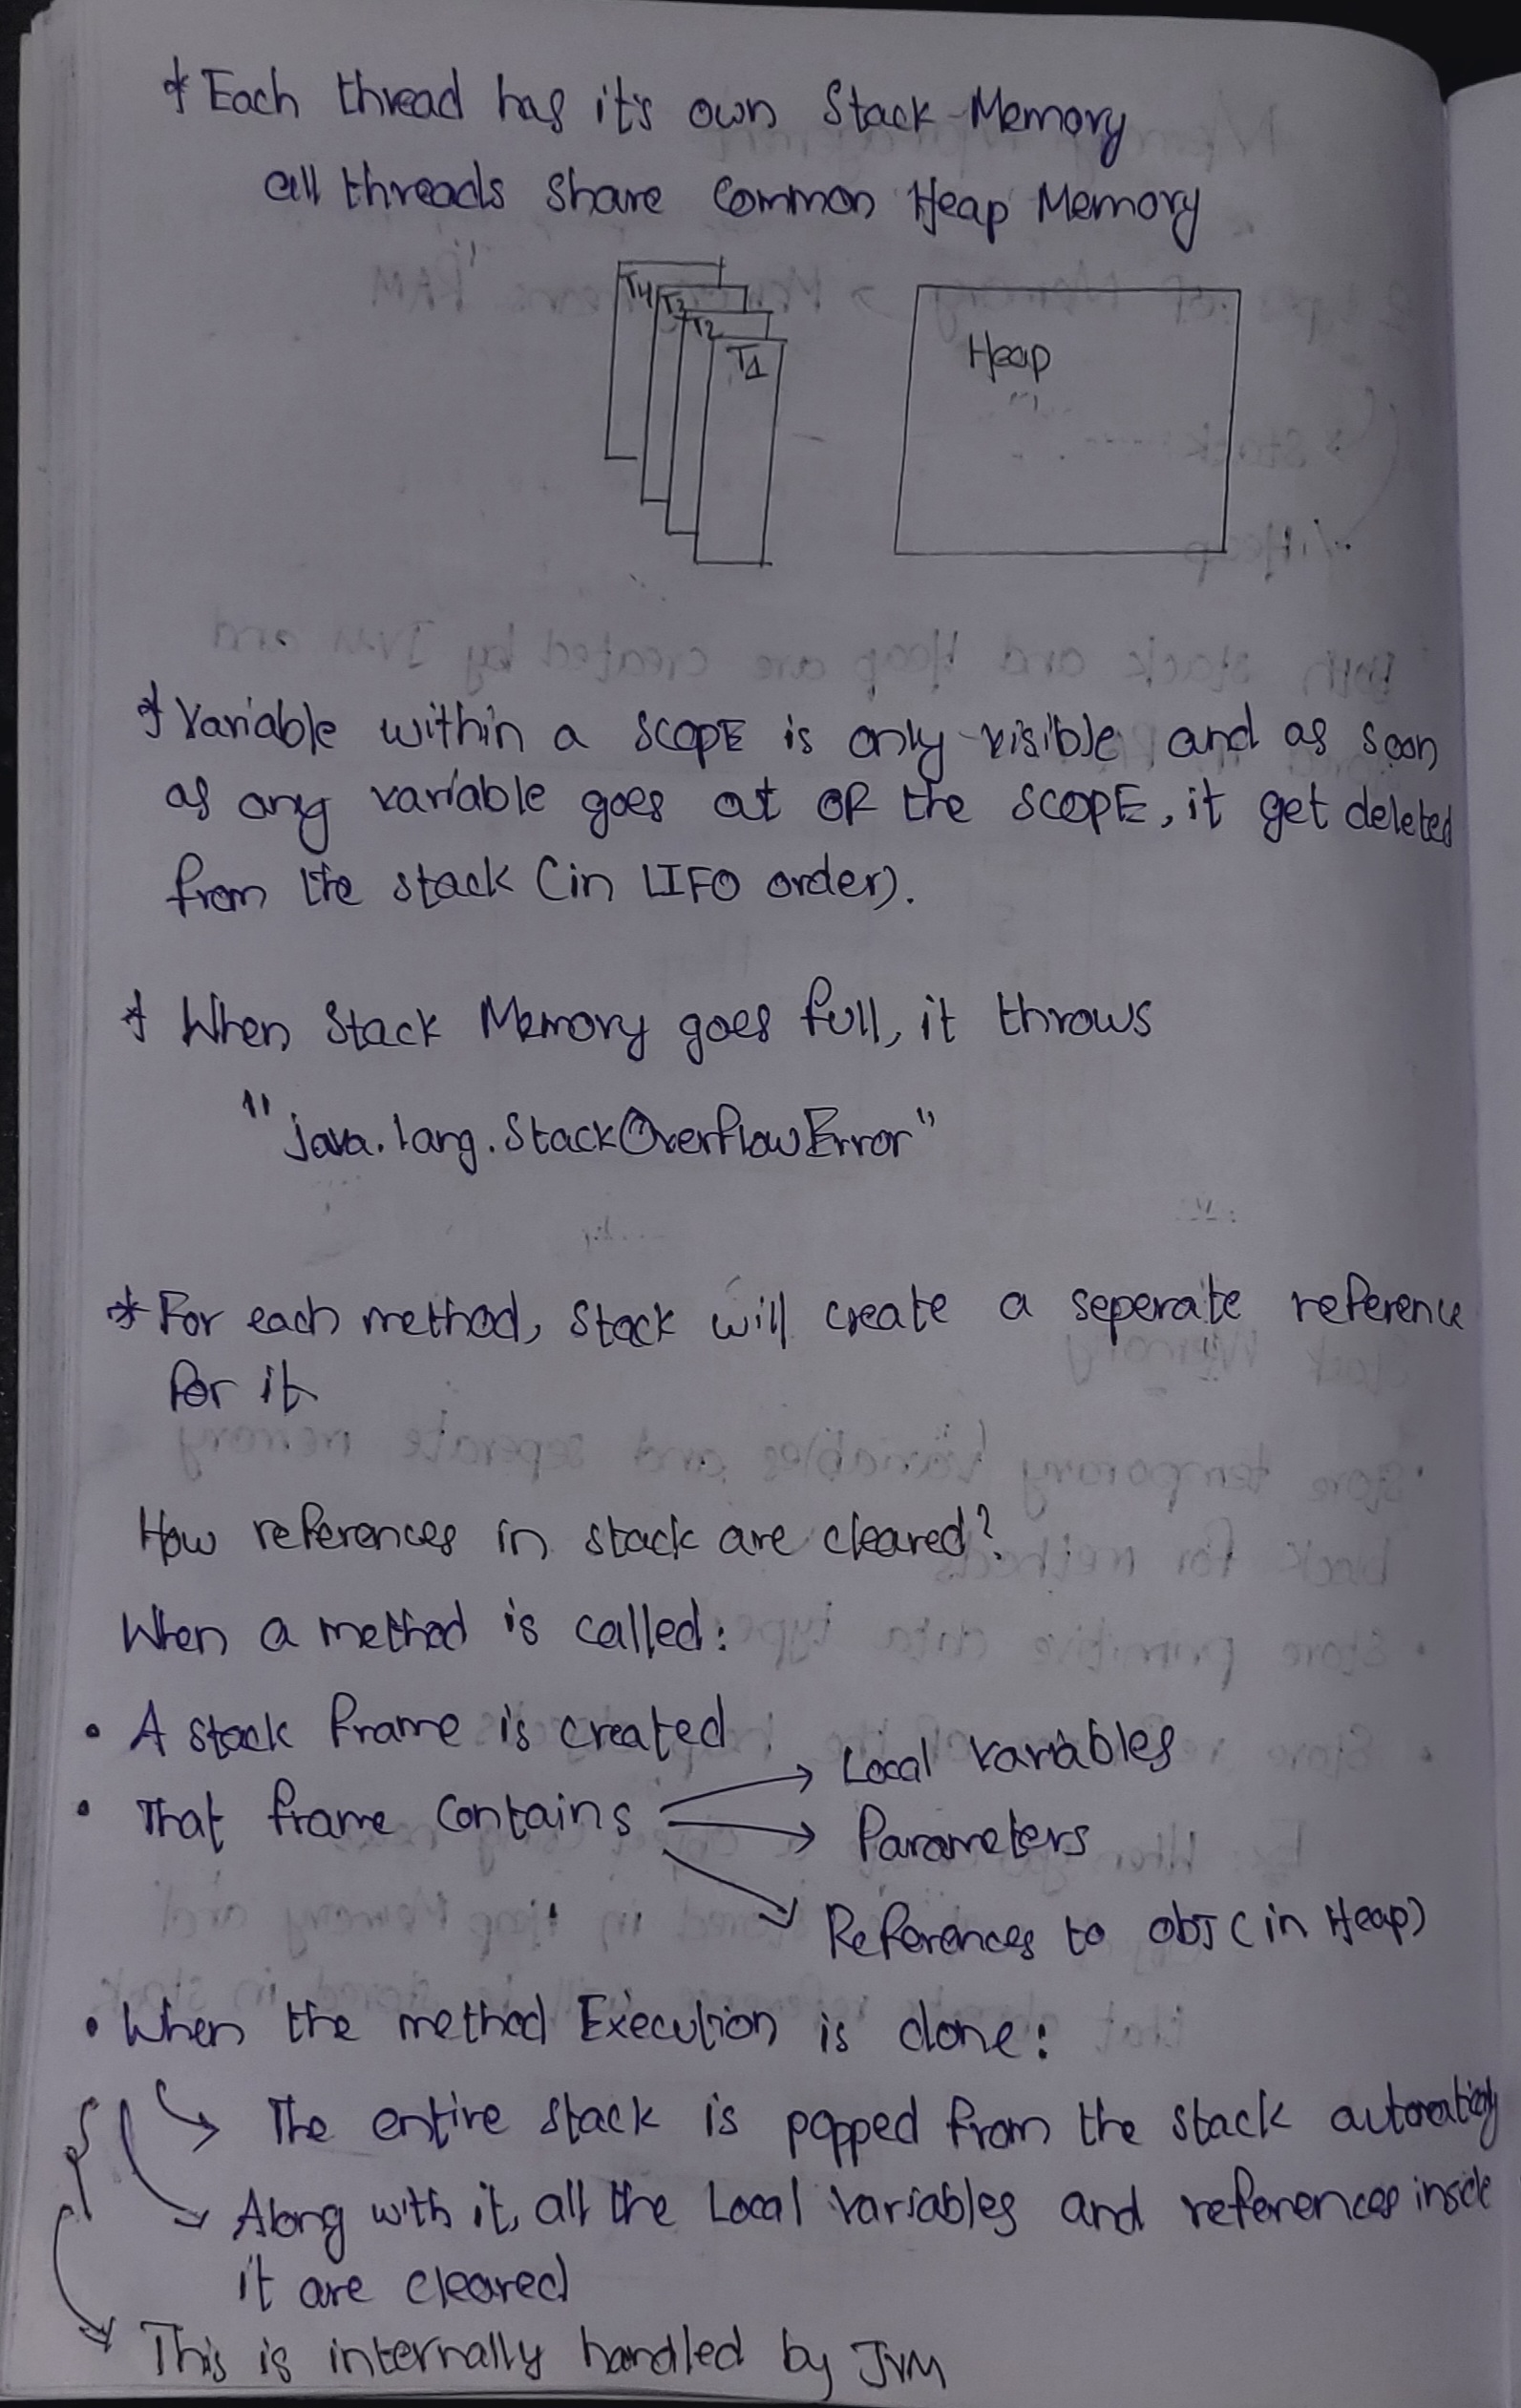 * Each thread has it's own Stack Memory
all threads share Common Heap Memory
T4 T3 T2 T1
Heap
* Variable within a SCOPE is only visible and as soon
as any variable goes out OF the SCOPE, it get deleted
from the stack (in LIFO order).
* When Stack Memory goes full, it throws
"java.lang.StackOverflowError"
* For each method, Stack will create a seperate reference
for it
How references in stack are cleared?
When a method is called:
• A stack frame is created
• That frame contains → Local variables
→ Parameters
→ References to obj (in Heap)
• When the method Execution is done:
→ The entire stack is popped from the stack automatically
→ Along with it, all the Local variables and references inside
it are cleared
→ This is internally handled by JVM